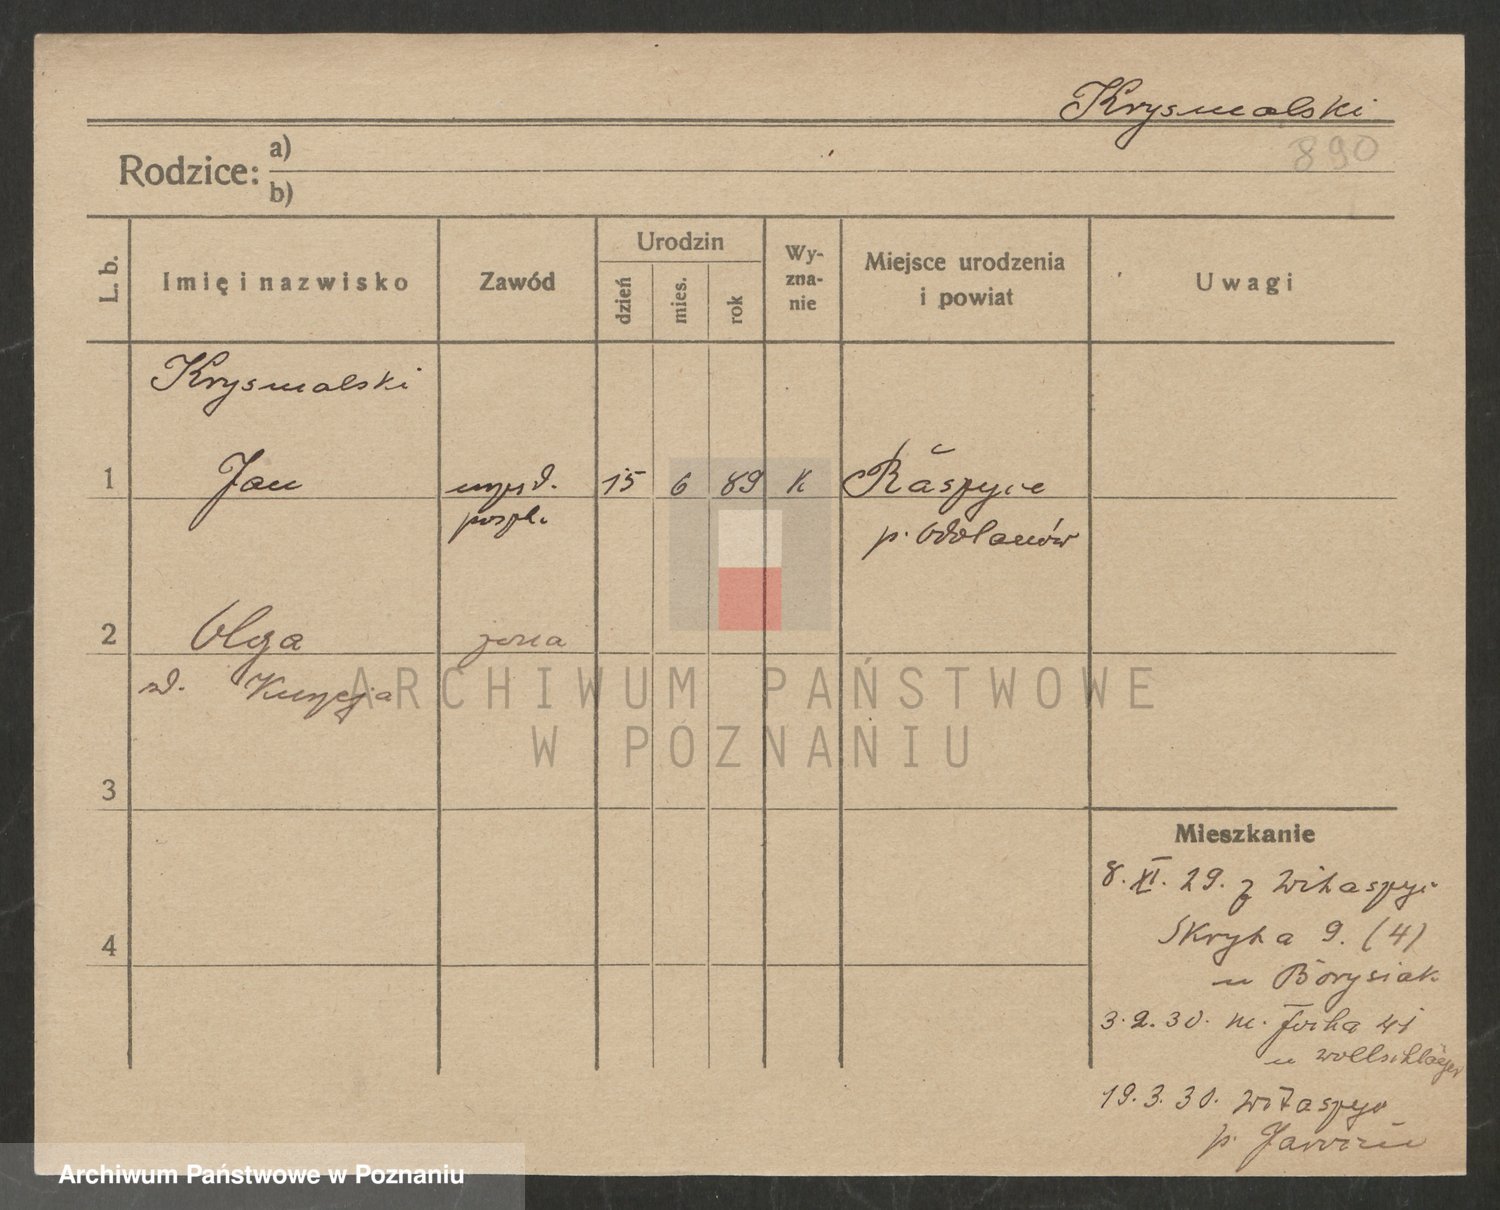 Krysmalski
890
Rodzice: a)
b)
L. b.
Imię i nazwisko
Zawód
Urodzin
dzień
mies.
rok
Wy-
zna-
nie
Miejsce urodzenia
i powiat
Uwagi
Krysmalski
1 Jan 15 6 89 K Raszyce
p. Odolanów
2 Olga żona
zd.
3
4
Mieszkanie
8. XI. 29. z Witaszyc
Skryta 9. (4)
u Borysiak
3. 2. 30. m. Focha 41
u Wollschläger
19. 3. 30. Witaszyce
p. Jarocin
ARCHIWUM PAŃSTWOWE
W POZNANIU
Archiwum Państwowe w Poznaniu